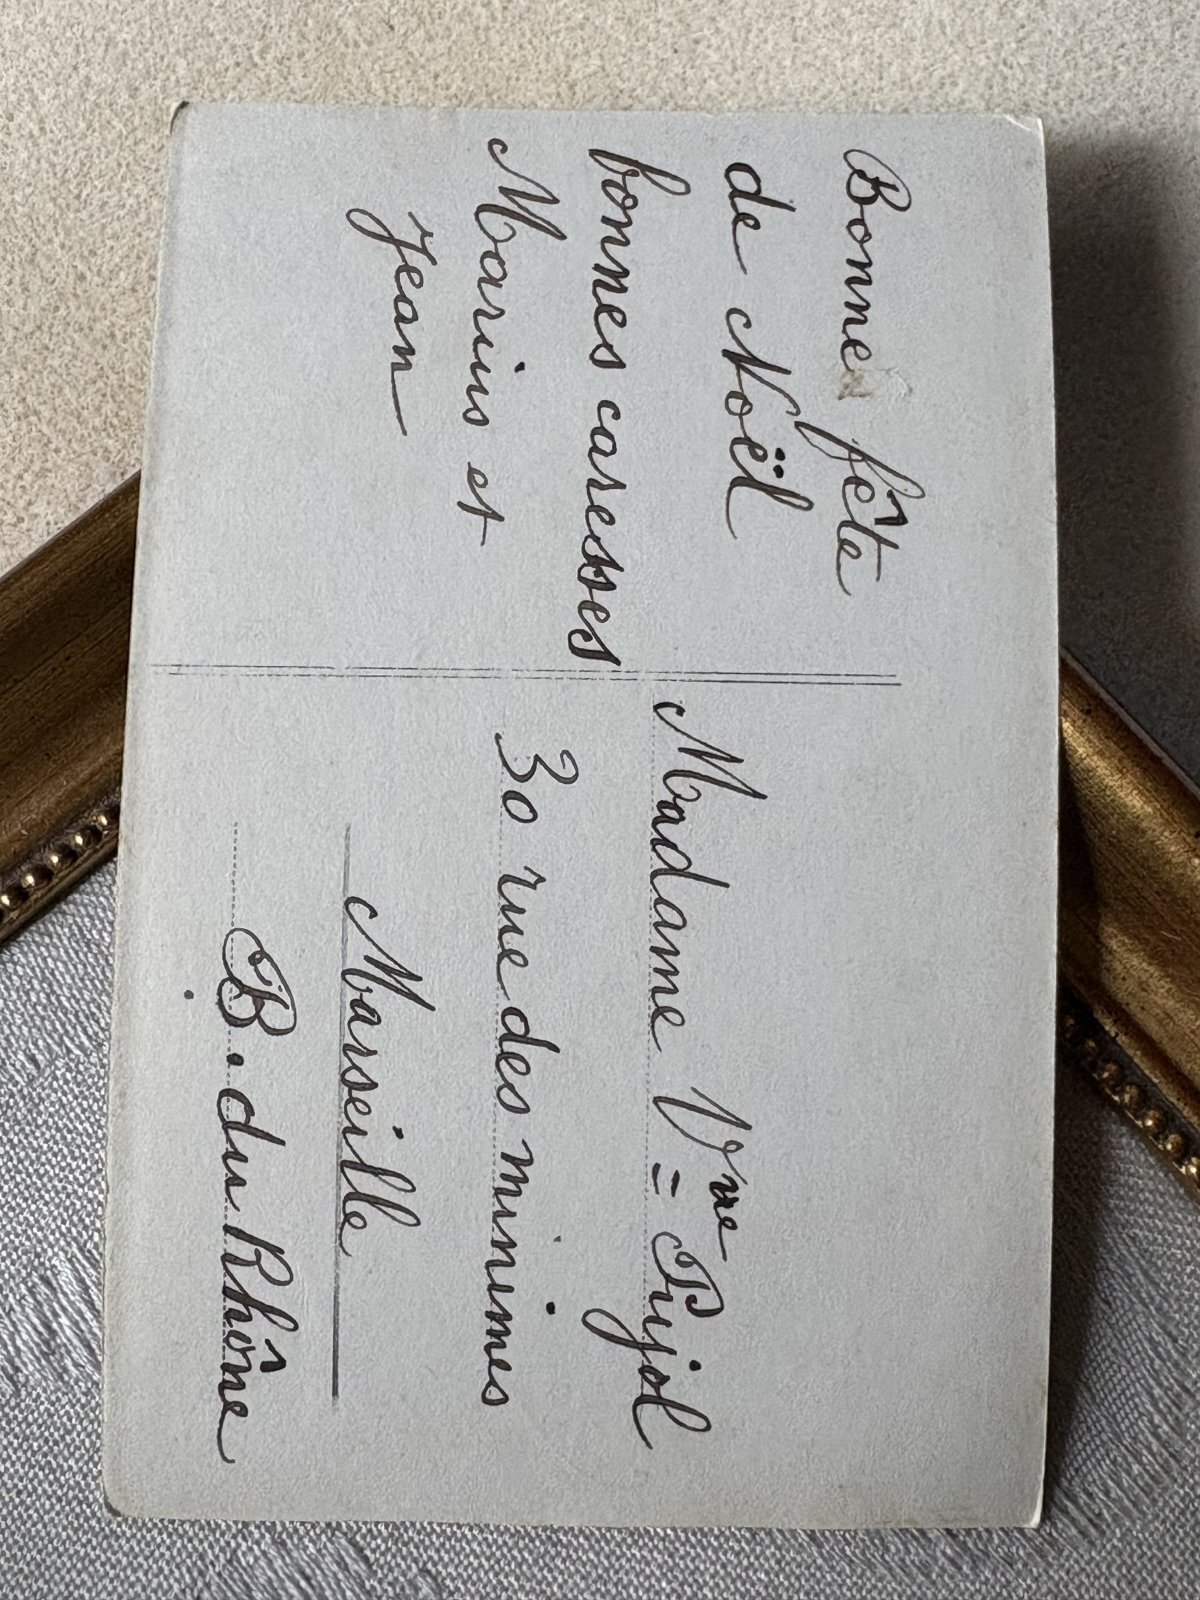 Bonne fête
de Noël
bonnes caresses
Marius et
Jean
Madame Vve Pujol
30 rue des minimes
Marseille
B. du Rhône